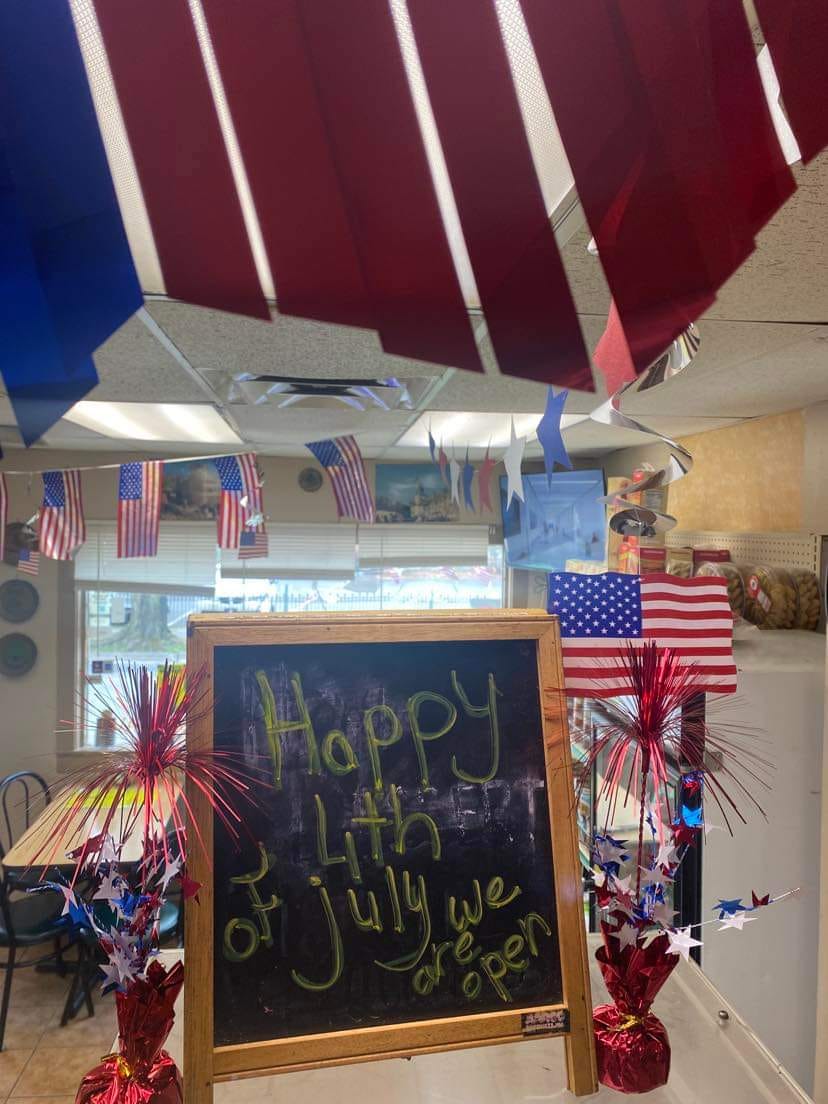 Happy
4th
of july we
are
open